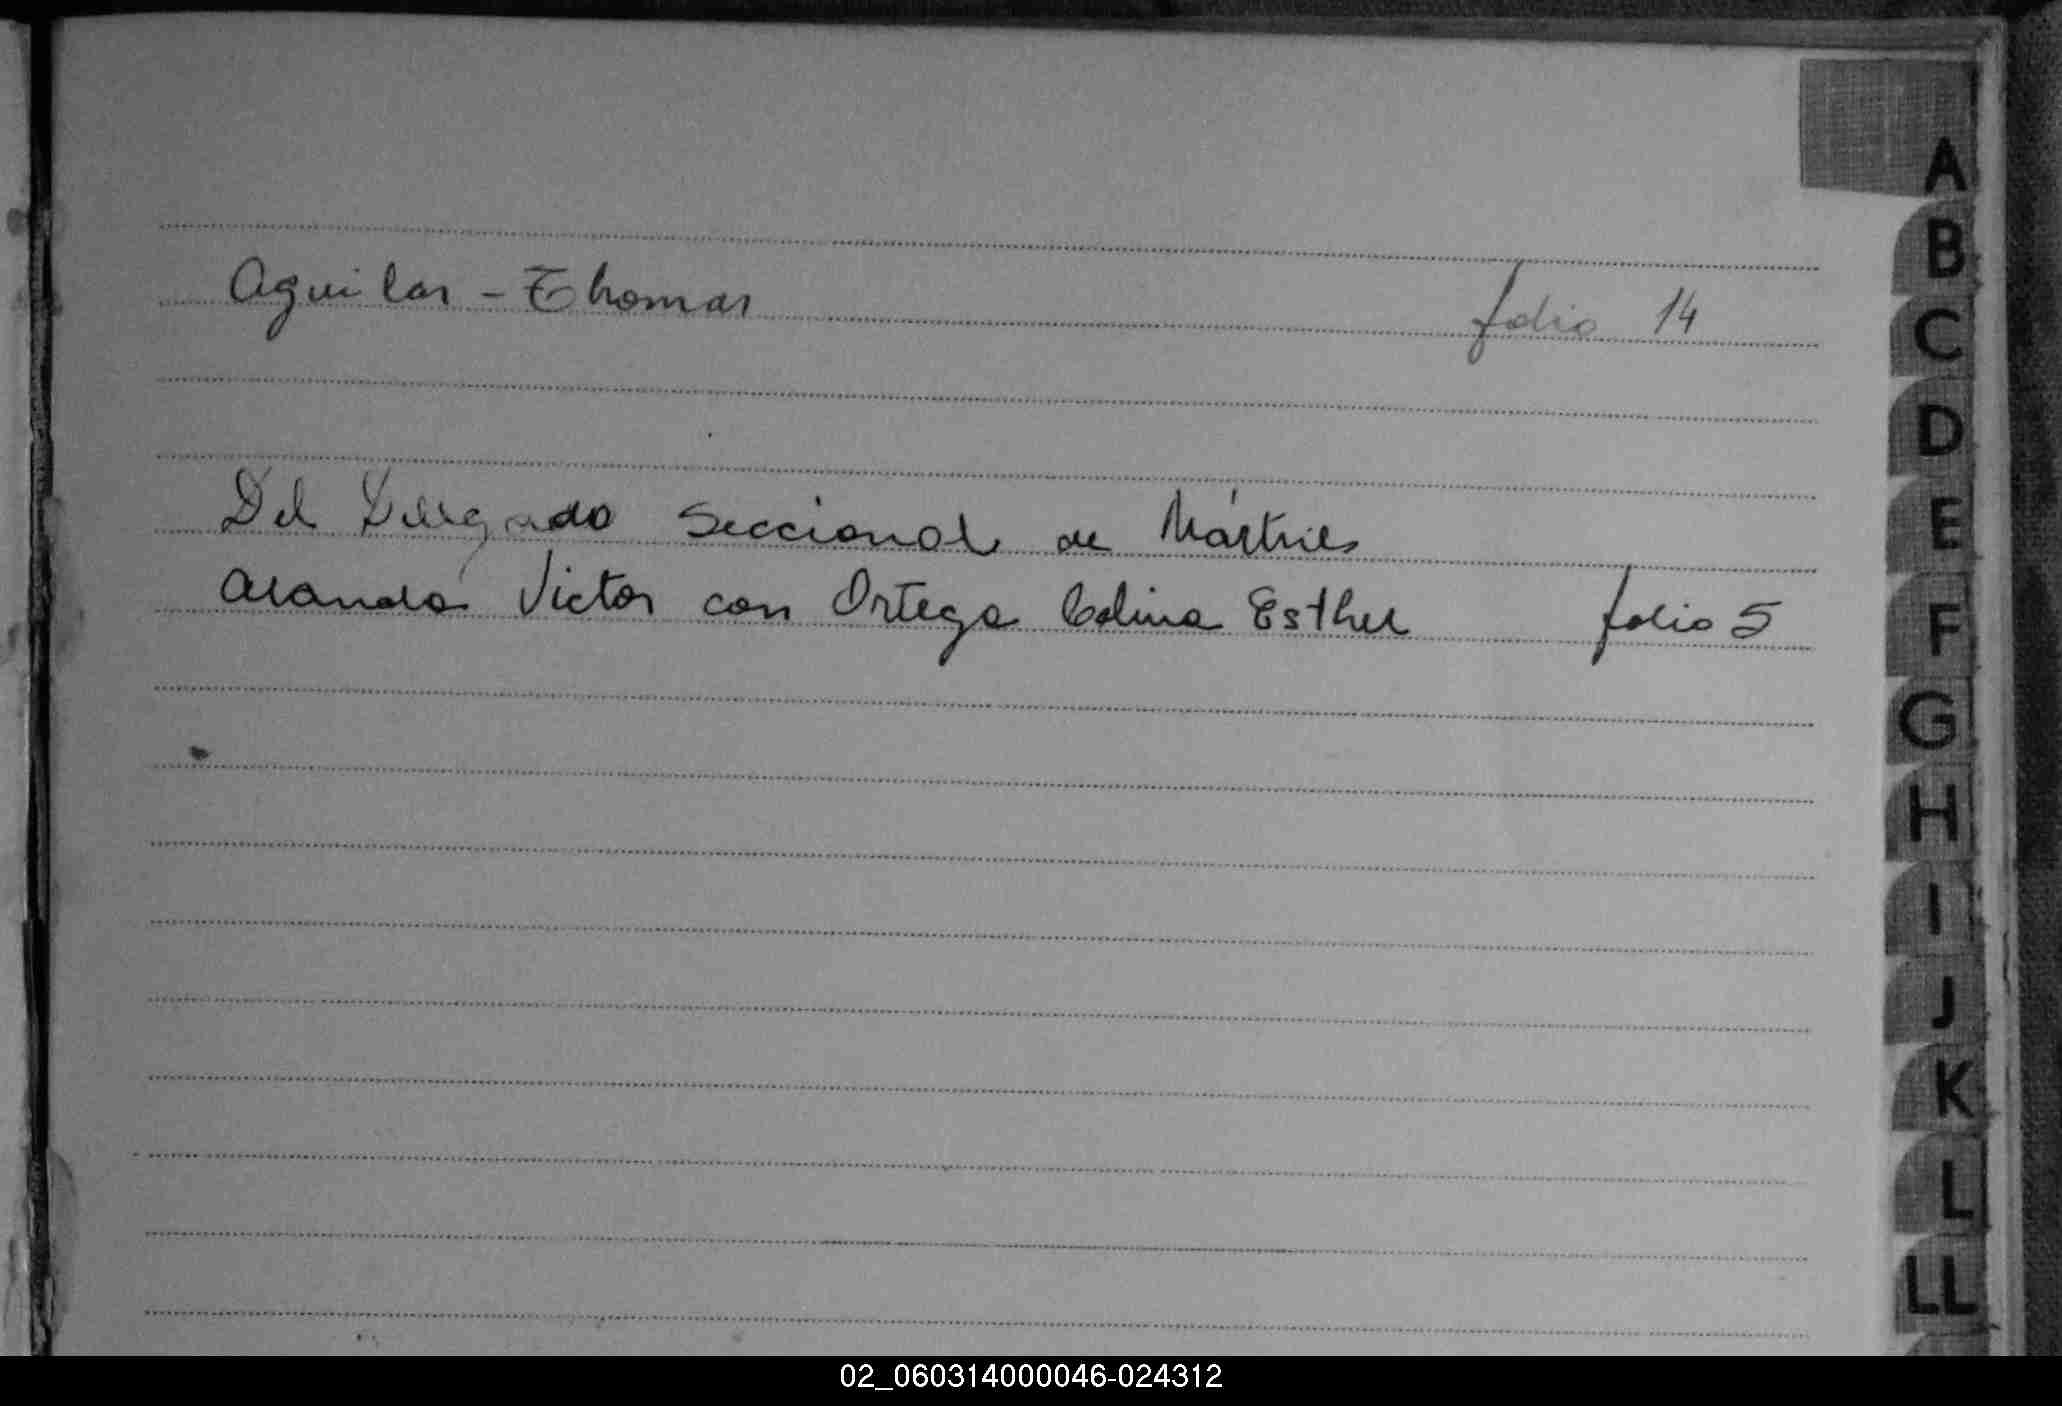 Aguilar - Thomas folio 14
Del Delegado Seccional de Mártires
Aranda Victor con Ortega Celina Esther folio 5
A
B
C
D
E
F
G
H
I
J
K
L
LL
02_060314000046-024312